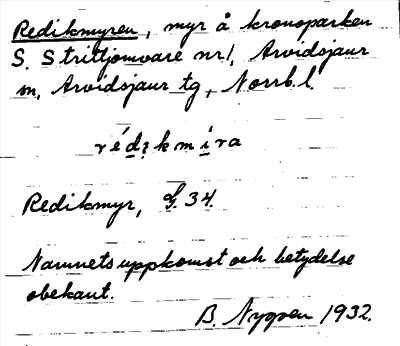 Redikmyren, myr å kronoparken
S. Stritjomvare nr 1, Arvidsjaur
sn, Arvidsjaur tg, Norrb. l.
rédikmira
Redikmyr, 34.
Namnets uppkomst och betydelse
obekant.
B. Nygren 1932.